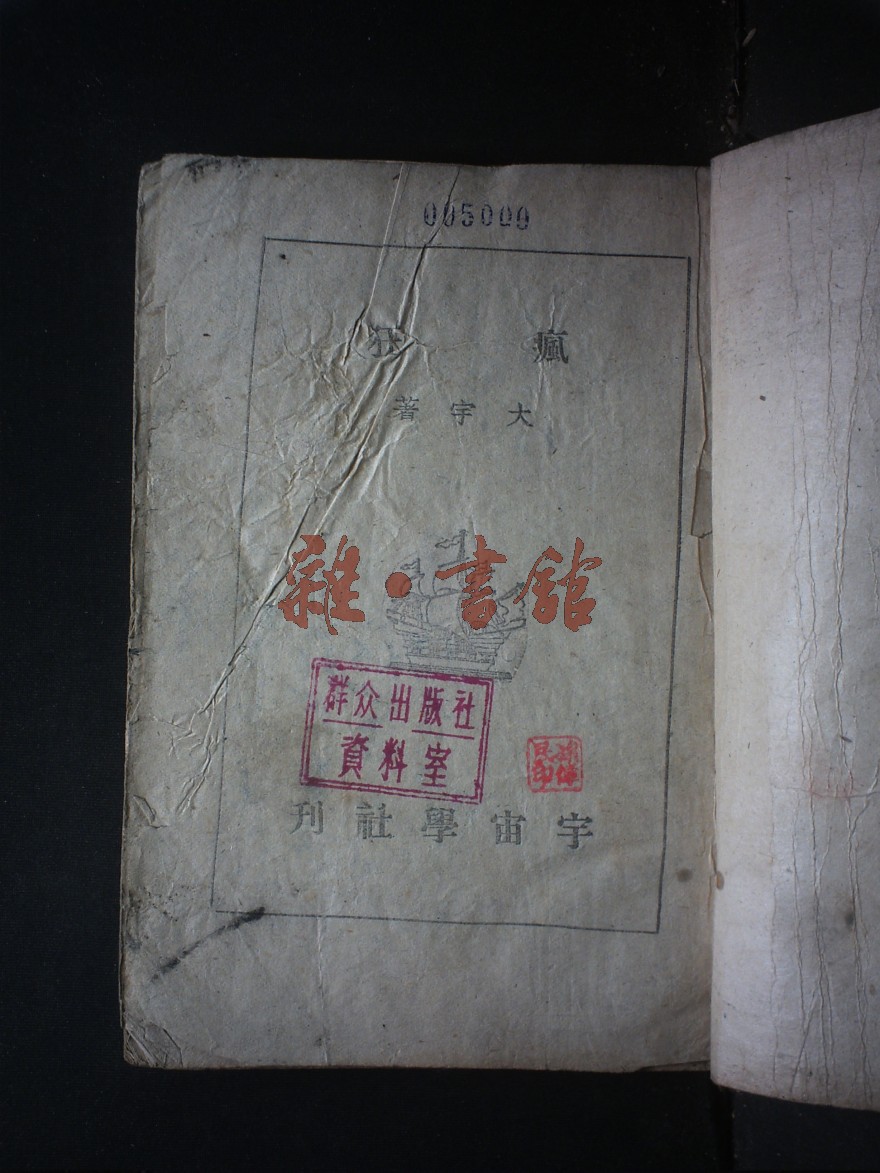 005000
瘋狂
大宇著
雜·書館
群众出版社
資料室
宇宙學社刊